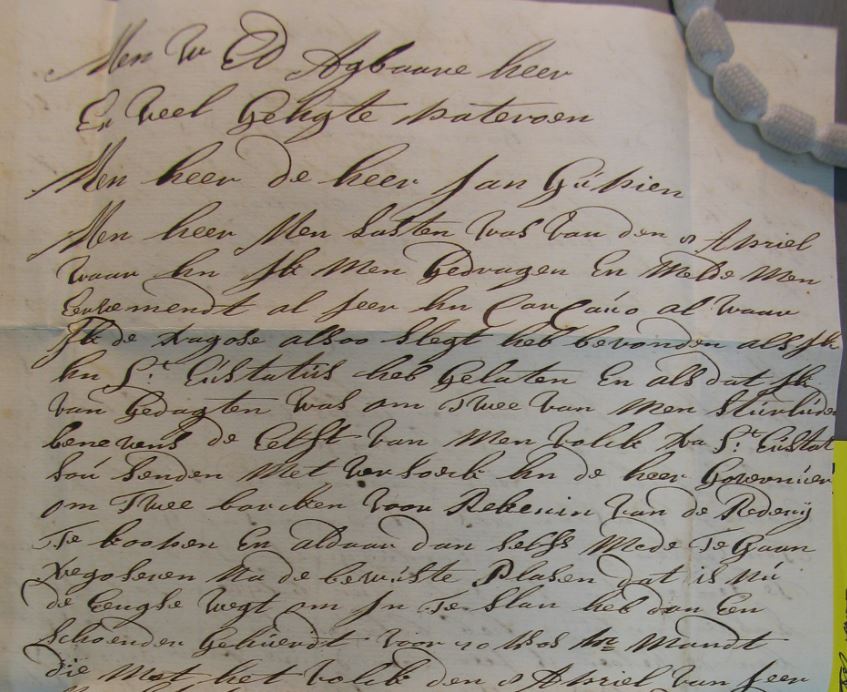 Men W Ed Agbaare heer
En Veel Gehgte patroen
Men heer de heer Jan Güpien
Men heer Men Lasten was van den 8 Apriel
waar hn Ik Men Gedragen En Melde Men
al hier hn al waar
Ik de Nagose alsoo Slegt heb bevonden als Ik
hn St. Eüstatiüs heb Gelaten En als dat Ik
van Gedagten was om Twee van Men Stürlüde
benevens de van Men volck na St. Eüstat
soú Senden Met versoeck hn de heer Governiur
om Twee barcken voor Rekenin van de Rederij
Te koopen En aldaar dan selfs Mede Te Gaan
Negoseren Na de bewúste Plasen dat is Nú
de Eengse wegt om In Te Slan heb dan Een
Schoender Gehüerdt voor Mandt
die Met het volck den 8 Apriel van hier